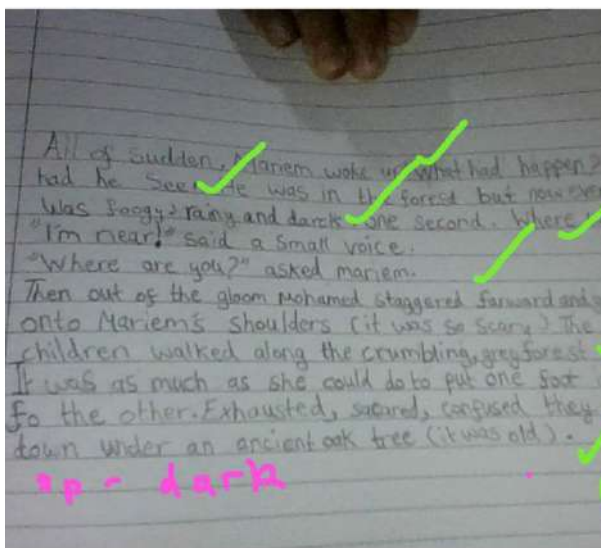 All of sudden, Mariem woke up. What had happen?
had he seen. He was in the forest but now ever
was foogy, rainy and darck. one second. Where
"I'm near!" said a small voice.
"Where are you?" asked mariem.
Then out of the gloom Mohamed staggered farward and
onto Mariem's shoulders (it was so scary) The
children walked along the crumbling, grey forest
It was as much as she could do to put one foot
fo the other. Exhausted, sacared, confused they
down under an ancient oak tree (it was old).
sp - dark